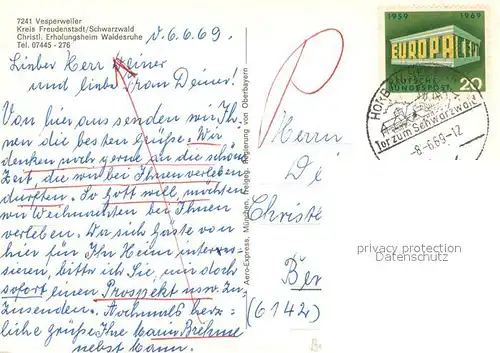 7241 Vesperweiler
Kreis Freudenstadt/Schwarzwald
Christl. Erholungsheim Waldesruhe
Tel. 07445 - 276
d. 6.6.69.
Lieber Herr Deiner
und liebe Frau Deiner!
Von hier aus senden wir Ih-
nen die besten Grüße. Wir
denken noch gerne an die schöne
Zeit, die wir bei Ihnen verleben
durften. So Gott will, möchten
wir Weihnachten bei Ihnen
verleben. Da sich Gäste von
hier für Ihr Heim interes-
sieren, bitte ich Sie, mir doch
sofort einen Prospekt usw. zu-
zusenden. Nochmals herz-
liche Grüße Ihre Maria Brehme
nebst Mann.
Aero-Express, München, freigeg. Regierung von Oberbayern
P
Herrn
De
Christl
Ber
(6142)
1959 1969
EUROPA CEPT
DEUTSCHE
BUNDESPOST
20
HORB
Tor zum Schwarzwald
-6.-6.69-12
privacy protection
Datenschutz